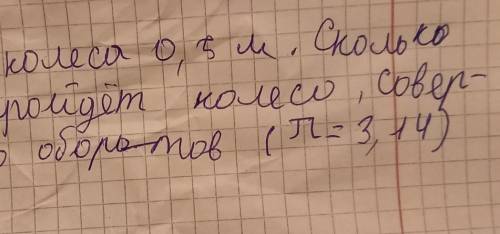 колеса 0,5 м. Сколько
ройдёт колесо, совер-
о оборотов (П = 3,14)